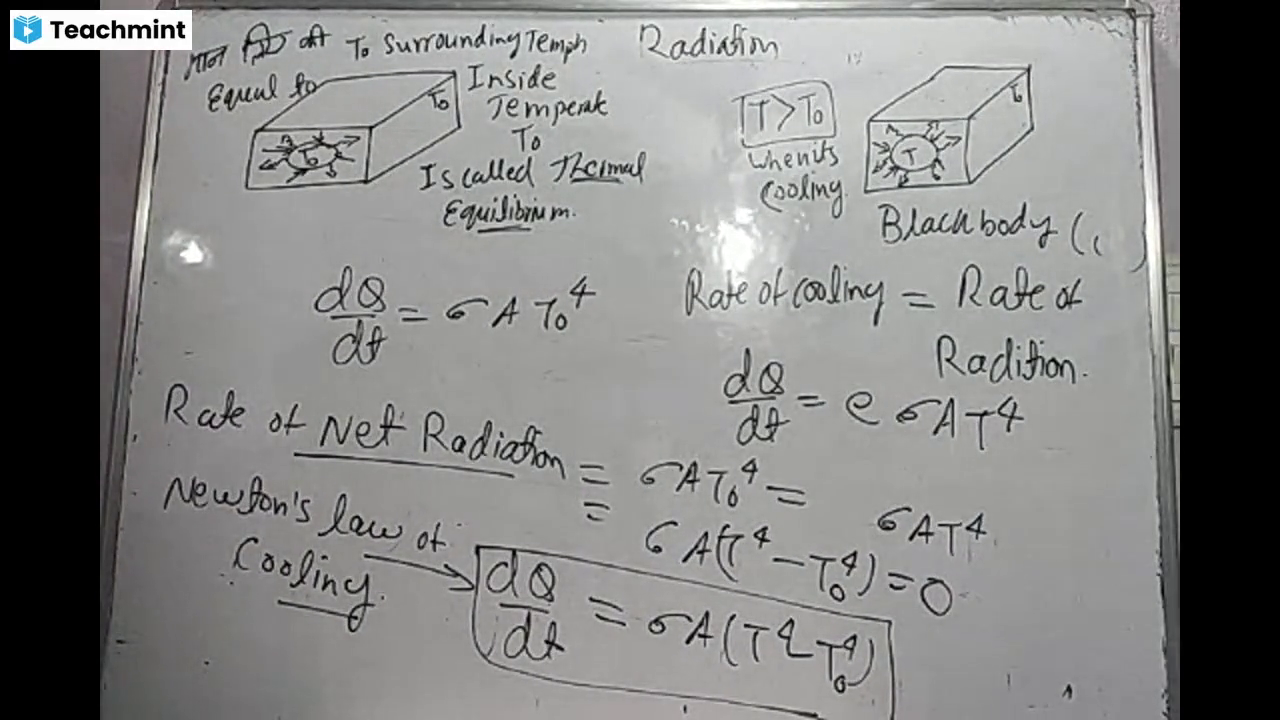 Teachmint
To Surrounding Temph
Equal to
Inside
Temperate
To
Is called Thermal
Equilibrium.
T₀
T₀
Radiation
T > T₀
when its
Cooling.
T₀
T
Black body (
dQ/dt = σ A T₀⁴
Rate of cooling = Rate of
Radition.
dQ/dt = e σ A T⁴
Rate of Net Radiation = σ A T₀⁴ = σ A T⁴
= σ A (T⁴ - T₀⁴) = 0
Newton's law of
Cooling.
dQ/dt = σ A (T⁴ - T₀⁴)